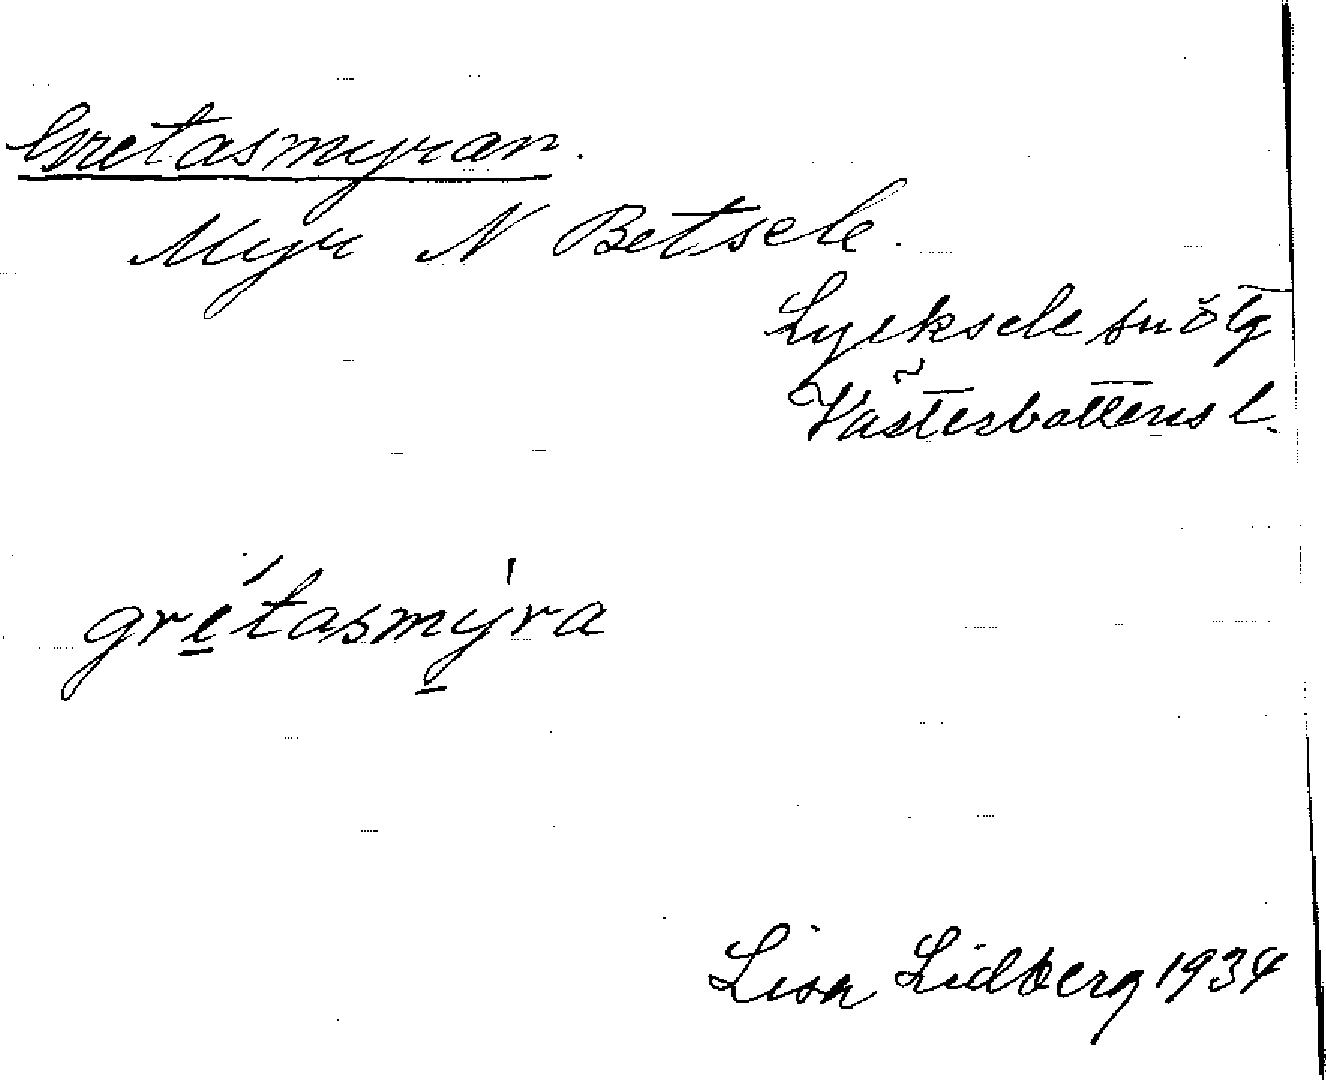 Gretasmyran.
Myr N Betsele.
Lycksele sn ö lg
Västerbottens l.
gre̲´tasmy̲'ra
Lisa Lidberg 1934